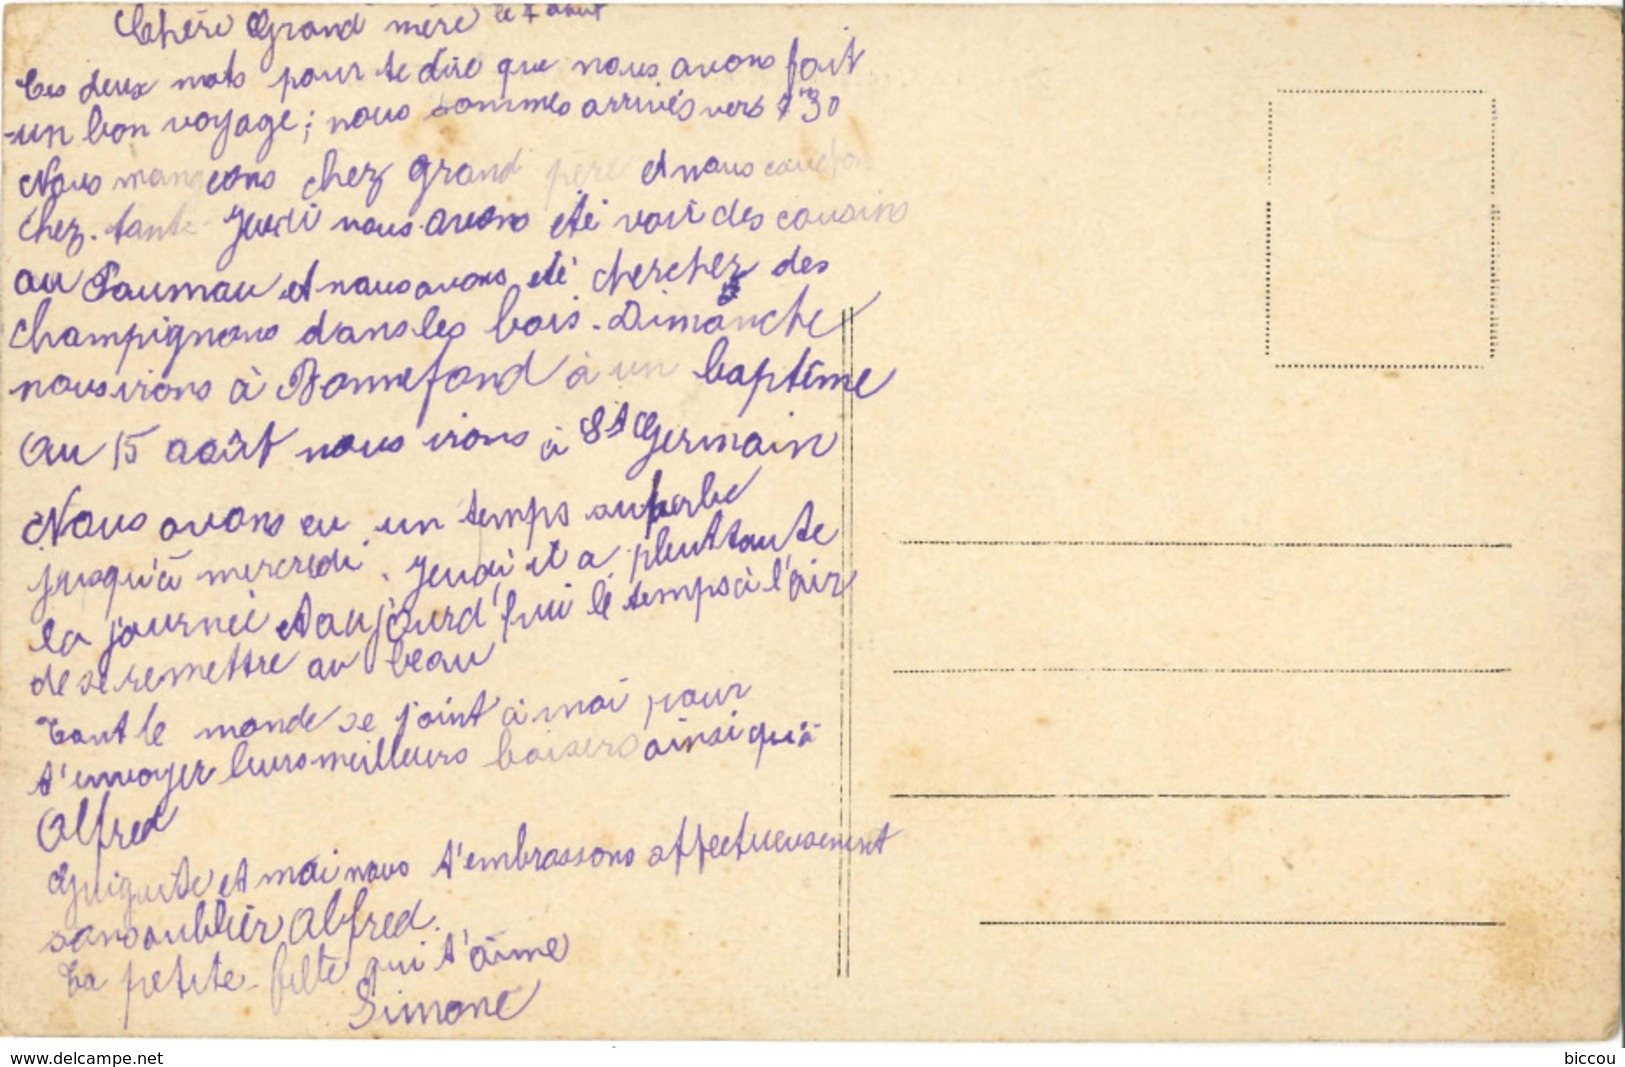 Chère Grand mère le 7 août
Ces deux mots pour te dire que nous avons fait
un bon voyage; nous sommes arrivés vers 7 30
Nous mangeons chez grand père et nous couchons
chez tante Jeudi nous avons été voir des cousins
au Paumau et nous avons été chercher des
champignons dans les bois. Dimanche
nous irons à Bonnefond à un baptême
Au 15 août nous irons à St Germain
Nous avons eu un temps superbe
jusqu'à mercredi. Jeudi il a pleut toute
la journée et aujourd'hui le temps à l'air
de se remettre au beau
Tout le monde se joint à moi pour
t'envoyer leurs meilleurs baisers ainsi qu'à
Alfred
Guiguite et moi nous t'embrassons affectueusement
sans oublier Alfred.
Ta petite-fille qui t'aime
Simone
www.delcampe.net
biccou